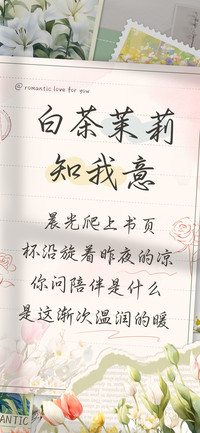 @ romantic love for you
白茶茉莉
知我意
晨光爬上书页
杯沿旋着昨夜的凉
你问陪伴是什么
是这渐次温润的暖
ANTIC